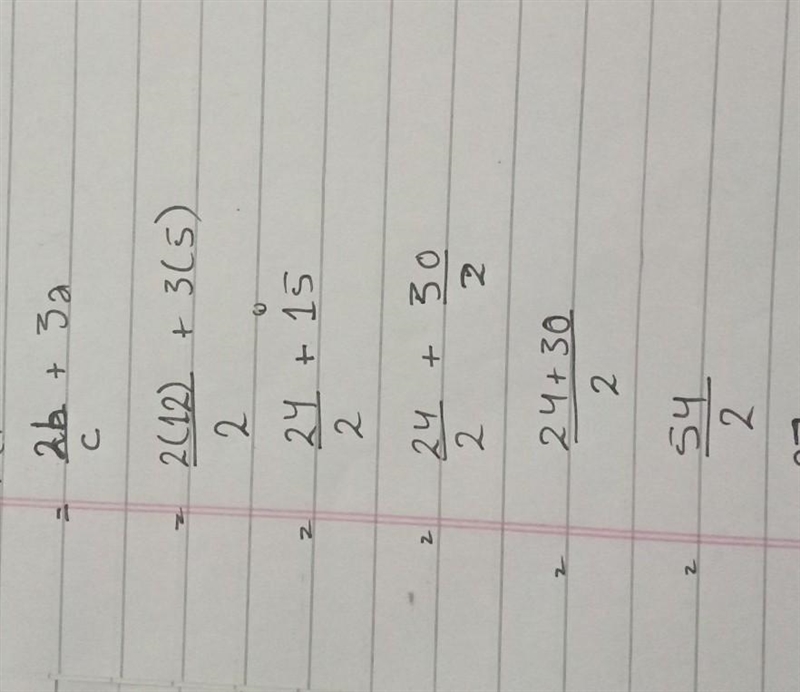 = 2b/c + 3a
= 2(12)/2 + 3(5)
= 24/2 + 15
= 24/2 + 30/2
= 24+30/2
= 54/2